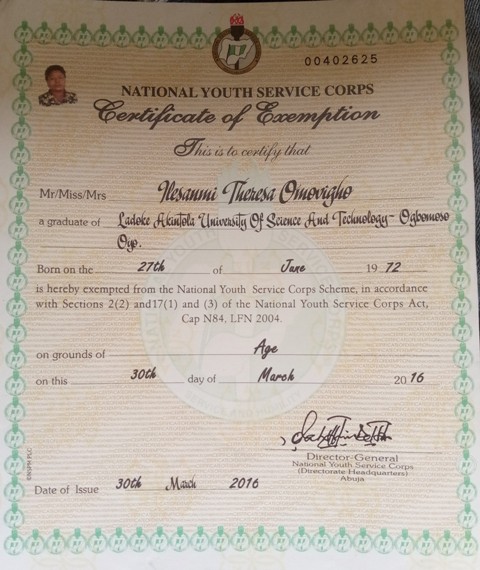 00402625
NATIONAL YOUTH SERVICE CORPS
Certificate of Exemption
This is to certify that
Mr/Miss/Mrs Ilesanmi Theresa Omovigho
a graduate of Ladoke Akintola University Of Science And Technology- Ogbomoso
Oyo.
Born on the 27th of June 1972
is hereby exempted from the National Youth Service Corps Scheme, in accordance
with Sections 2(2) and17(1) and (3) of the National Youth Service Corps Act,
Cap N84, LFN 2004.
on grounds of Age
on this 30th day of March 2016
Director-General
National Youth Service Corps
(Directorate Headquarters)
Abuja
Date of Issue 30th March 2016